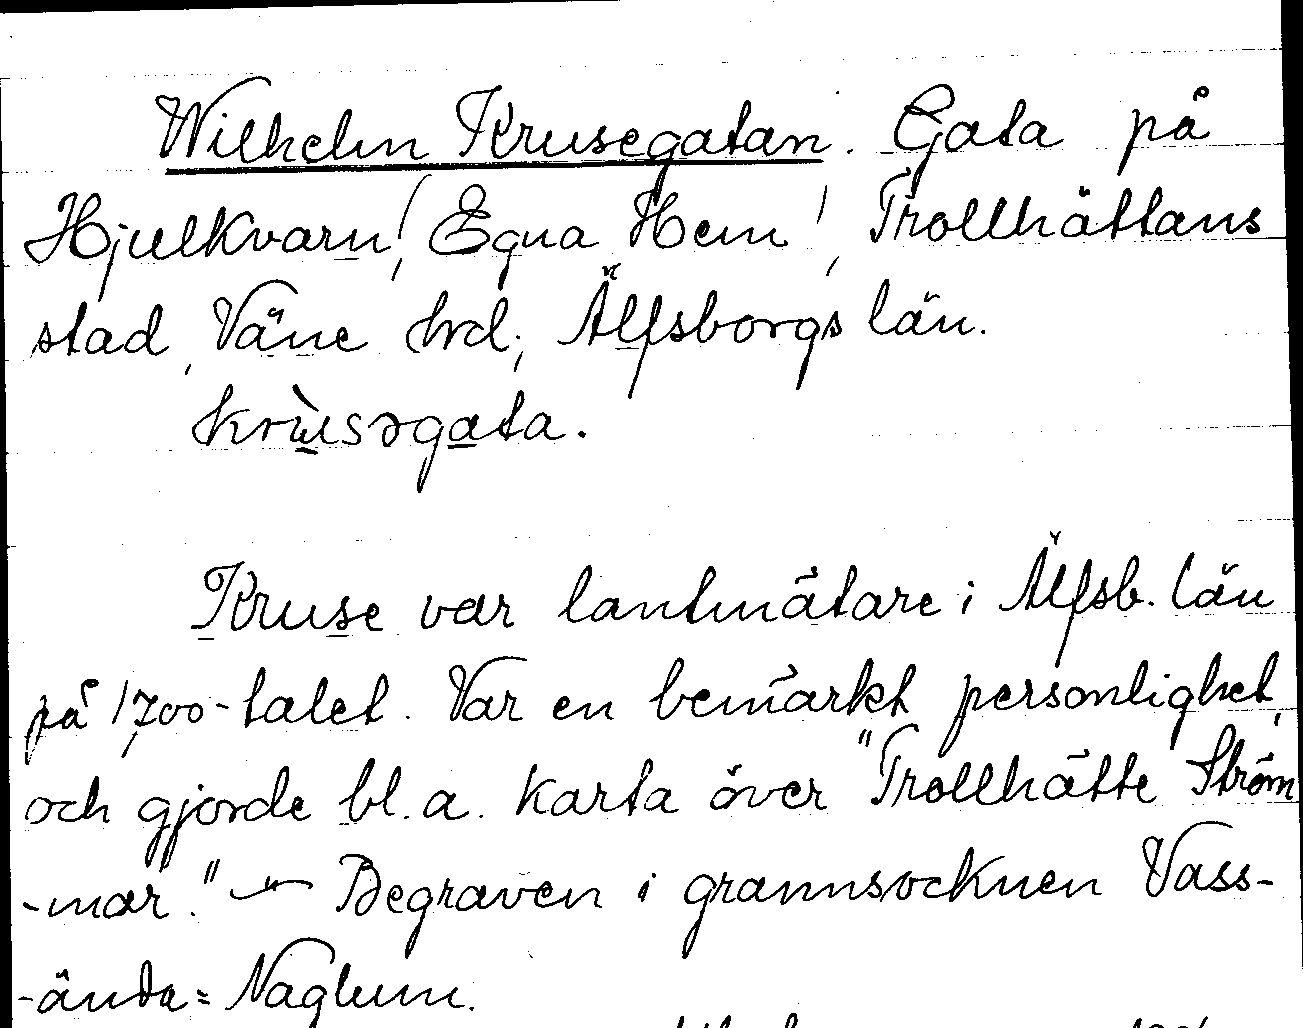 Wilhelm Krusegatan. Gata på
Hjulkvarn (Egna Hem), Trollhättans
stad, Väne hrd, Älfsborgs län.
krùsəgata.
Kruse var lantmätare i Älfsb. län
på 1700-talet. Var en bemärkt personlighet,
och gjorde bl.a. karta över "Trollhätte Ström
-mar." — Begraven i grannsocknen Vass-
-ända=Naglum.